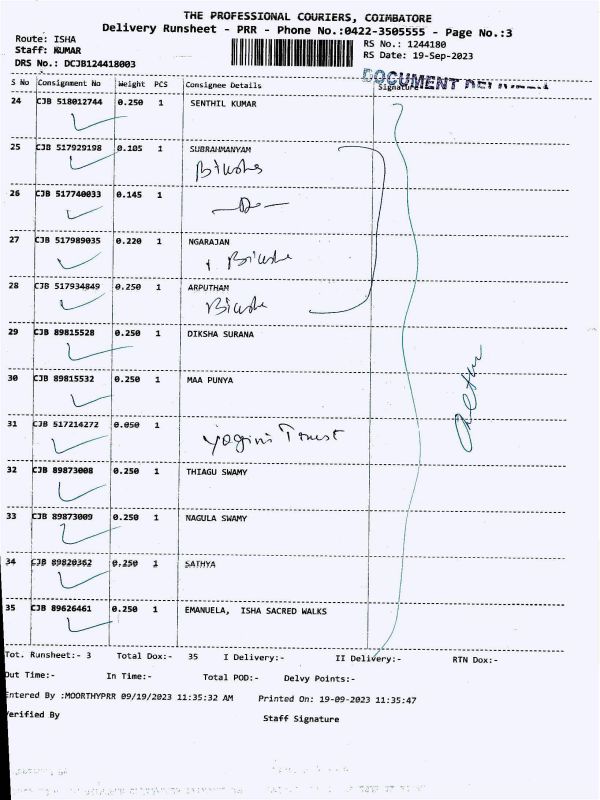 THE PROFESSIONAL COURIERS, COIMBATORE
Delivery Runsheet - PRR - Phone No.:0422-3505555 - Page No.:3
Route: ISHA
RS No.: 1244180
Staff: KUMAR
RS Date: 19-Sep-2023
DRS No.: DCJB124418003
DOCUMENT DELIVERY
S No Consignment No Weight PCS Consignee Details Signature
24 CJB 518012744 0.250 1 SENTHIL KUMAR
25 CJB 517929198 0.105 1 SUBRAHMANYAM
Biksha
26 CJB 517740033 0.145 1
—Do—
27 CJB 517989035 0.220 1 NGARAJAN
Biksha
28 CJB 517934849 0.250 1 ARPUTHAM
Biksha
29 CJB 89815528 0.250 1 DIKSHA SURANA
30 CJB 89815532 0.250 1 MAA PUNYA
31 CJB 517214272 0.050 1
Yogini Trust
32 CJB 89873008 0.250 1 THIAGU SWAMY
33 CJB 89873009 0.250 1 NAGULA SWAMY
34 CJB 89820362 0.250 1 SATHYA
35 CJB 89626461 0.250 1 EMANUELA, ISHA SACRED WALKS
Tot. Runsheet:- 3 Total Dox:- 35 I Delivery:- II Delivery:- RTN Dox:-
Out Time:- In Time:- Total POD:- Delvy Points:-
Entered By :MOORTHYPRR 09/19/2023 11:35:32 AM Printed On: 19-09-2023 11:35:47
Verified By Staff Signature